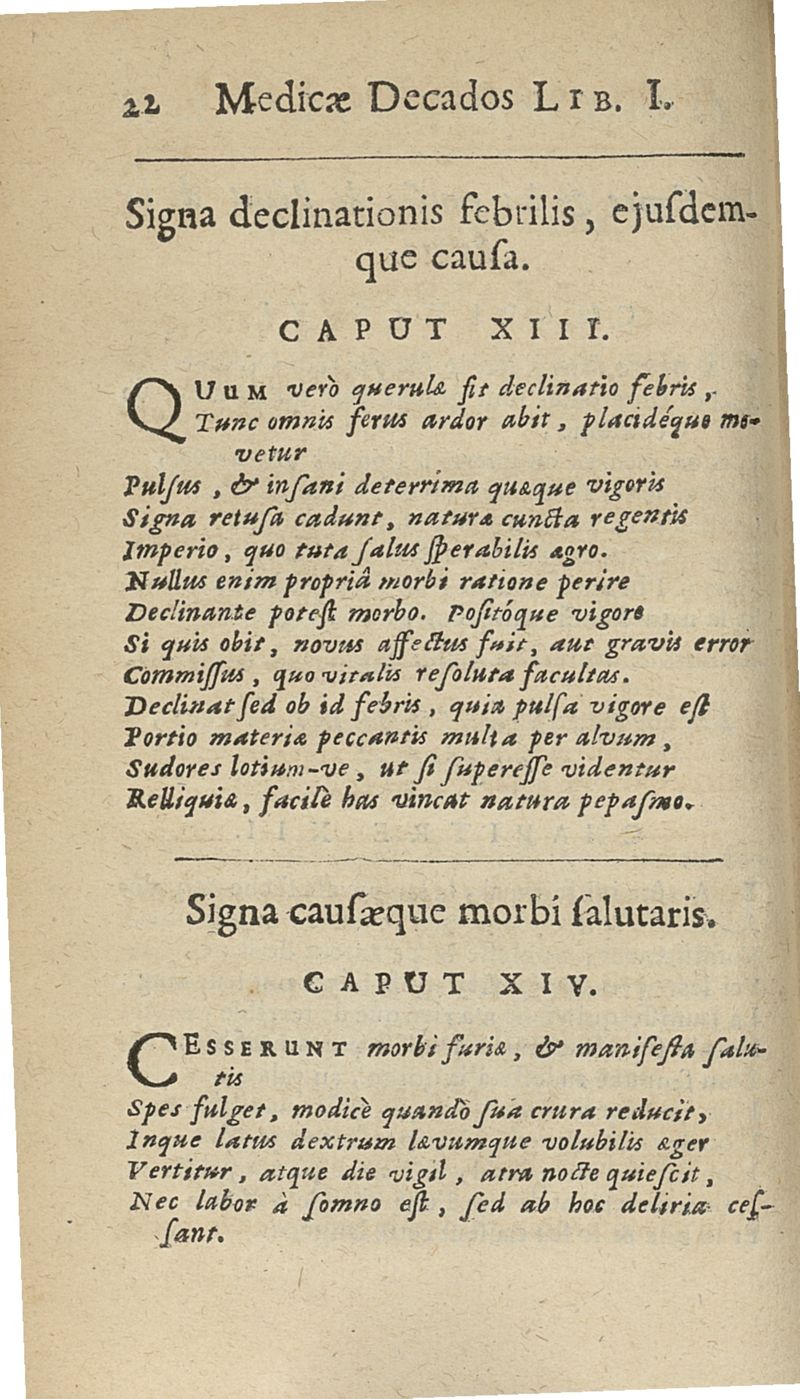 22 Medicæ Decados LIB. I.
Signa declinationis febrilis, ejuſdem-
que cauſa.
CAPUT XIII.
QUUM verò querulæ ſit declinatio febris,
Tunc omnis ferus ardor abit, placidéque mo-
vetur
Pulſus, & inſani deterrima quæque vigoris
Signa retuſa cadunt, naturæ cuncta regentis
Imperio, quo tuta ſalus ſperabilis ægro.
Nullus enim propriâ morbi ratione perire
Declinante poteſt morbo. Poſitóque vigore
Si quis obit, novus affectus fuit, aut gravis error
Commiſſus, quo vitalis reſoluta facultas.
Declinat ſed ob id febris, quia pulſa vigore eſt
Portio materiæ peccantis multa per alvum,
Sudores lotium-ve, ut ſi ſupereſſe videntur
Relliquiæ, facilè has vincat natura pepaſmo.
Signa cauſæque morbi ſalutaris.
CAPUT XIV.
CESSERUNT morbi furiæ, & manifeſta ſalu-
tis
Spes fulget, modicè quandò ſua crura reducit,
Inque latus dextrum lævumque volubilis æger
Vertitur, atque die vigil, atra nocte quieſcit,
Nec labor à ſomno eſt, ſed ab hoc deliria ceſ-
ſant.